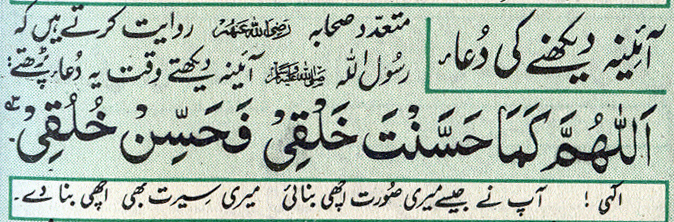 آئینہ دیکھنے کی دُعاء
متعدّد صحابہ رضی اللہ عنہم روایت کرتے ہیں کہ
رسُول اللہ صلی اللہ علیہ وسلم آئینہ دیکھتے وقت یہ دُعاء پڑھتے:
اَللّٰهُمَّ كَمَا حَسَّنْتَ خَلْقِیْ فَحَسِّنْ خُلُقِیْ
الٰہی! آپ نے جیسے میری صُورت اچھی بنائی میری سِیرت بھی اچھی بنا دے۔